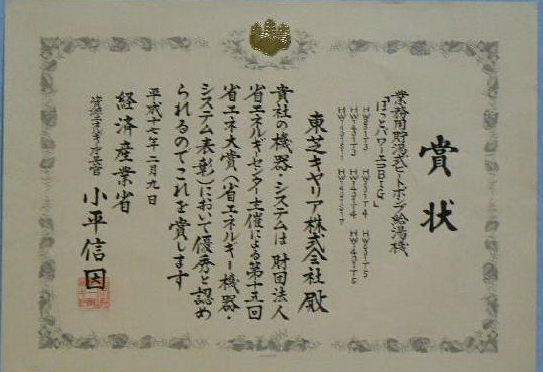 賞状
業務用貯湯式ヒートポンプ給湯機
「ほっとパワーエコBIG」
東芝キヤリア株式会社 殿
貴社の機器・システムは財団法人
省エネルギーセンター主催による第十五回
省エネ大賞(省エネルギー機器・
システム表彰)において優秀と認め
られるのでこれを賞します
平成十七年二月九日
経済産業省
資源エネルギー庁長官 小平信因